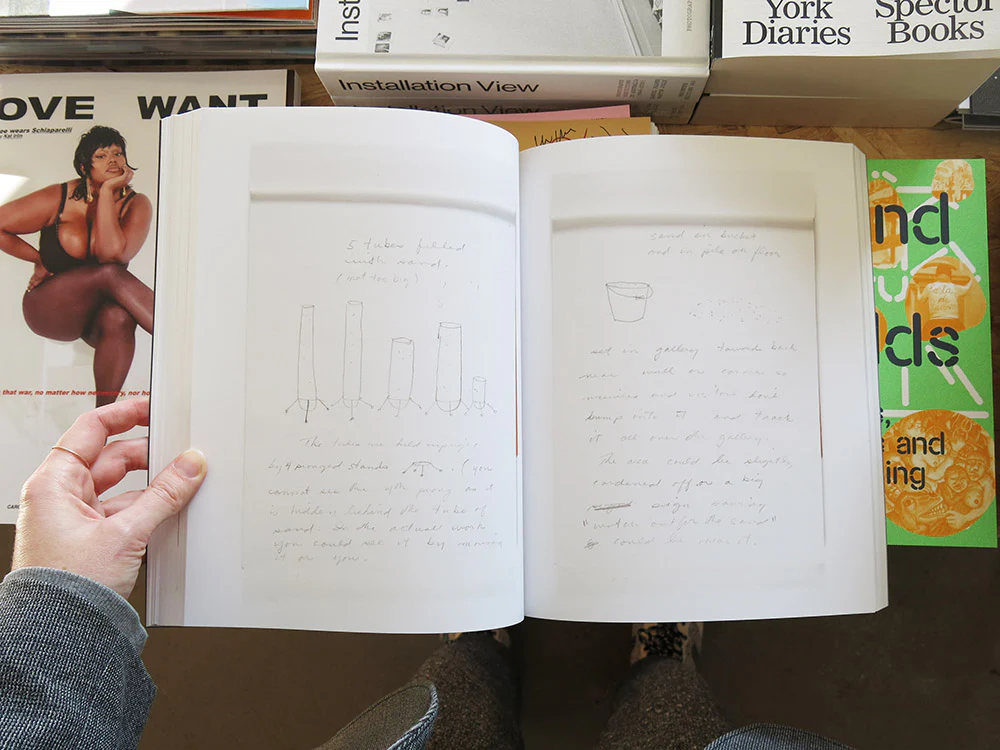 Install
Installation View
Installation View
PHOTOGRAPH
York
Diaries
Spector
Books
OVE WANT
oo wears Schiaparelli
that war, no matter how necessary, nor ho
CAR
nd
ds
and
ing
5 tubes filled
with sand.
(not too big)
The tubes are held upright
by 4 pronged stands . (you
cannot see the 4th prong as it
is hidden behind the tube of
sand. In the actual work
you could see it by moving
it or you.
sand in bucket
and in pile on floor
set in gallery toward back
near wall or corner so
viewers and visitors don't
bump into it and track
it all over the gallery.
The area could be slightly
condened off or a big
sign warning
"watch out for the sand"
could be near it.